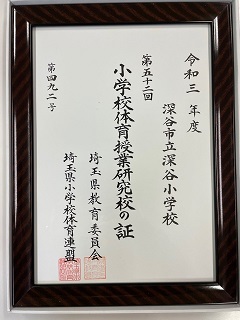 令和三年度
深谷市立深谷小学校
第五十二回
小学校体育授業研究校の証
埼玉県教育委員会
埼玉県小学校体育連盟
第四九二号